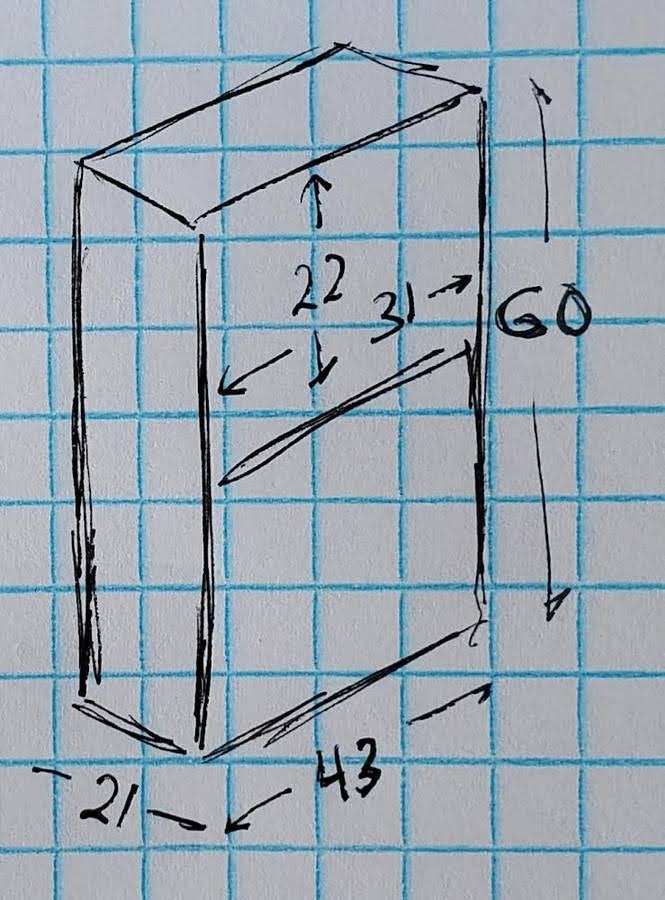 22
31
60
43
21